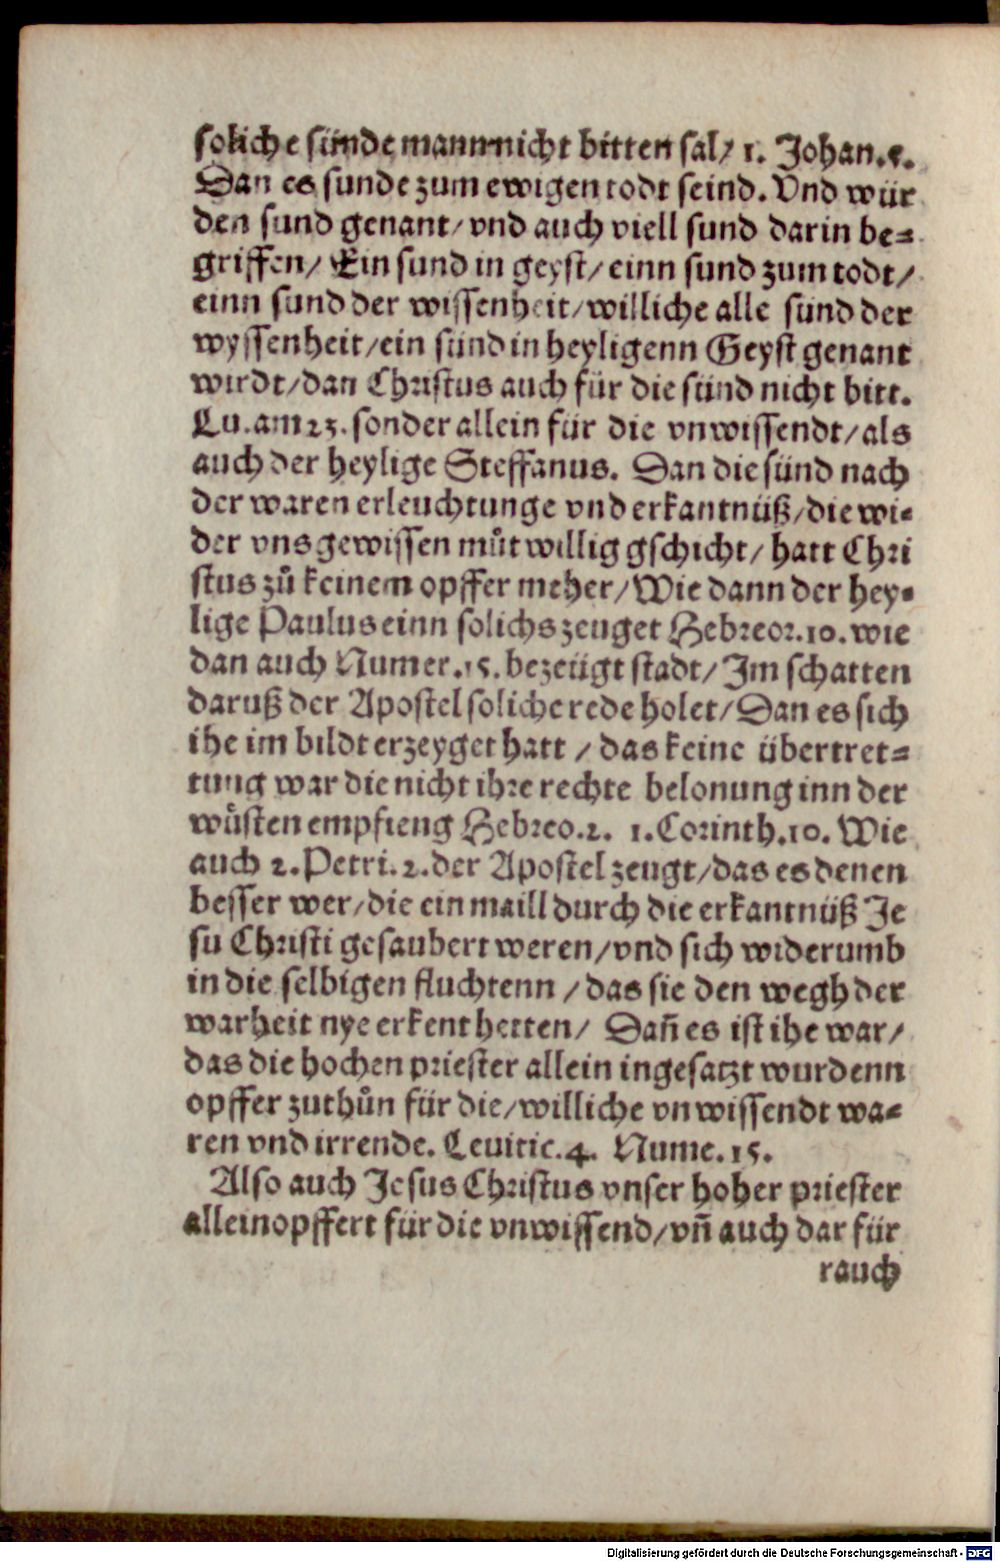 soliche sünde mann nicht bitten sal/ 1. Johan.5.
Dan es sunde zum ewigen todt seind. Vnd wür
den sund genant/ vnd auch viell sund darin be⸗
griffen/ Ein sund in geyst/ einn sund zum todt/
einn sund der wissenheit/ williche alle sünd der
wyssenheit/ ein sünd in heyligenn Geyst genant
wirdt/ dan Christus auch für die sünd nicht bitt.
Lu. am 23. sonder allein für die vnwissendt/ als
auch der heylige Steffanus. Dan die sünd nach
der waren erleuchtunge vnd erkantnüß/ die wi⸗
der vns gewissen můtwillig gschicht/ hatt Chri
stus zů keinem opffer meher/ Wie dann der hey⸗
lige Paulus einn solichs zeuget Hebreor.10. wie
dan auch Numer.15. bezeügt stadt/ Im schatten
daruß der Apostel soliche rede holet/ Dan es sich
ihe im bildt erzeyget hatt / das keine übertret⸗
tung war die nicht ihre rechte belonung inn der
wůsten empfieng Hebreo.2. 1. Corinth.10. Wie
auch 2. Petri.2. der Apostel zeugt/ das es denen
besser wer/ die ein maill durch die erkantnüß Je
su Christi gesaubert weren/ vnd sich widerumb
in die selbigen fluchtenn / das sie den wegh der
warheit nye erkent hetten/ Dañ es ist ihe war/
das die hochen priester allein ingesatzt wurdenn
opffer zuthůn für die/ williche vnwissendt wa⸗
ren vnd irrende. Leuitic.4. Nume.15.
Also auch Jesus Christus vnser hoher priester
allein opffert für die vnwissend/ vñ auch dar für
rauch
Digitalisierung gefördert durch die Deutsche Forschungsgemeinschaft - DFG